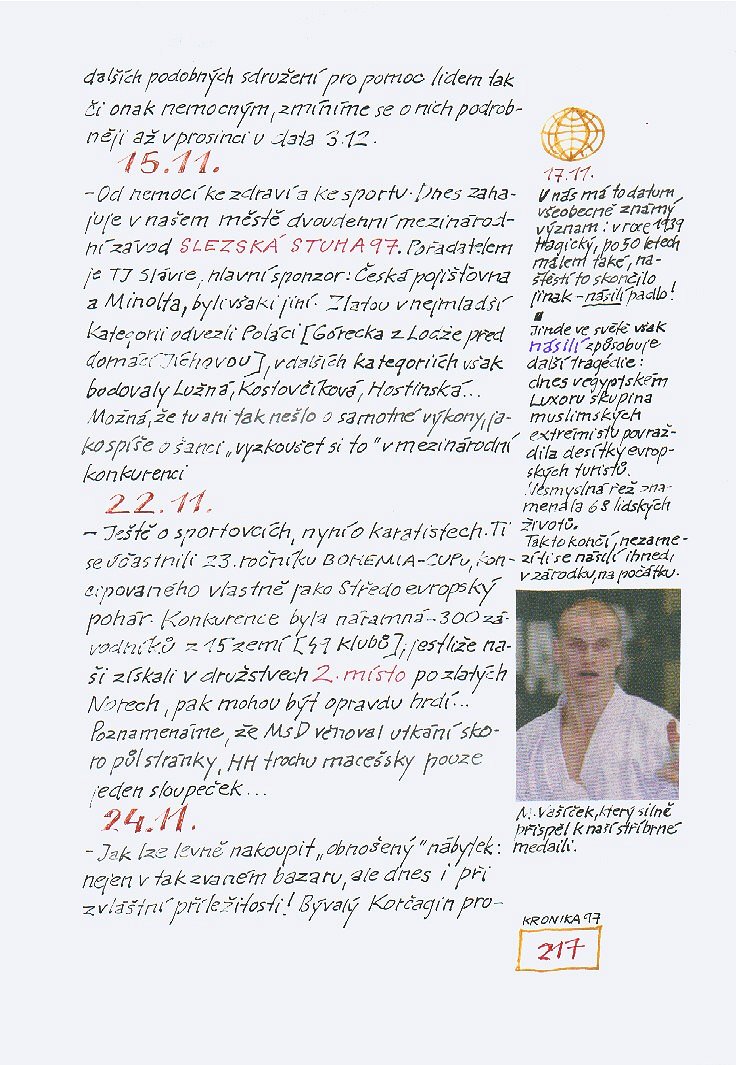 dalších podobných sdružení pro pomoc lidem tak
či onak nemocným, zmíníme se o nich podrob-
něji až v prosinci u data 3.12.
15.11.
- Od nemocí ke zdraví a ke sportu. Dnes zaha-
juje v našem městě dvoudenní mezinárod-
ní závod SLEZSKÁ STUHA 97. Pořadatelem
je TJ Slávie, hlavní sponzor: Česká pojišťovna
a Minolta, byli však i jiní. Zlatou v nejmladší
kategorii odvezli Poláci [Górecka z Lodže před
domácí Jichovou], v dalších kategoriích však
bodovaly Lužná, Kostovčíková, Hostinská...
Možná, že tu ani tak nešlo o samotné výkony, ja-
ko spíše o šanci „vyzkoušet si to" v mezinárodní
konkurenci
22.11.
- Ještě o sportovcích, nyní o karatistech. Ti
se účastnili 23. ročníku BOHEMIA-CUPu, kon-
cipovaného vlastně jako Středoevropský
pohár. Konkurence byla náramná - 300 zá-
vodníků z 15 zemí [47 klubů], jestliže na-
ši získali v družstvech 2. místo po zlatých
Norech, pak mohou být opravdu hrdí...
Poznamenáme, že MsD věnoval utkání sko-
ro půl stránky, HH trochu macešsky pouze
jeden sloupeček...
24.11.
- Jak lze levně nakoupit „obnošený" nábytek:
nejen v tak zvaném bazaru, ale dnes i při
zvláštní příležitosti! Bývalý Korčagin pro-
17.11.
U nás má to datum
všeobecně známý
význam: v roce 1939
tragický, po 50 letech
málem také, na-
štěstí to skončilo
jinak - násilí padlo!
Jinde ve světě však
násilí způsobuje
další tragédie:
dnes v egyptském
Luxoru skupina
muslimských
extremistů povraž-
dila desítky evrop-
ských turistů.
Nesmyslná řež zna-
menala 68 lidských
životů.
Tak to končí, nezame-
zí-li se násilí ihned,
v zárodku, na počátku.
M. Vašíček, který silně
přispěl k naší stříbrné
medaili.
KRONIKA 97
217